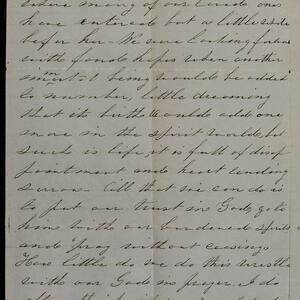 where many of our loved ones
have entered but a little while
before her. We were looking forward
with fond hopes when another
immortal being would be added
to number, little dreaming
that its birth would add one
more in the spirit world, but
such is life, it is full of disap
pointment and heart rending
sorrow - All that we can do is
to put our trust in God, go to
him with our burdened spirits
and "pray without ceasing.
How little do we do this wrestle
with our God in prayer. I do